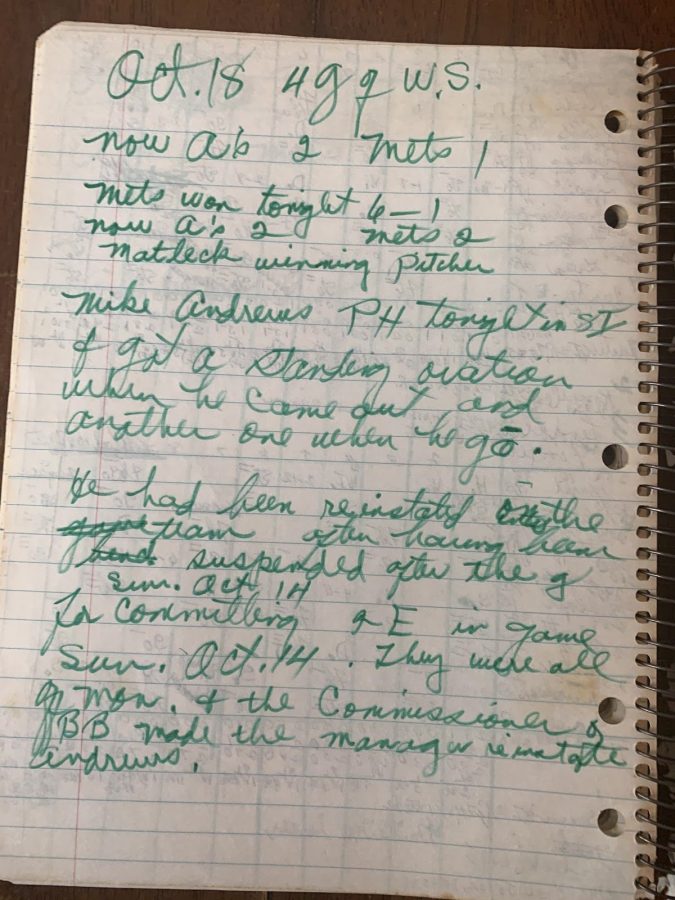 Oct. 18 4 g of W.S.
now A's 2 Mets 1
Mets won tonight 6-1
now A's 2 Mets 2
Matleck winning pitcher
Mike Andrews PH tonight in 8 I
& got a standing ovation
when he came out and
another one when he g o.
He had been reinstated on the
team after having been
suspended after the g
Sun. Oct. 14
for committing 2 E in game
Sun. Oct. 14. They were all
Mon. & the Commissioner of
BB made the manager reinstate
Andrews.